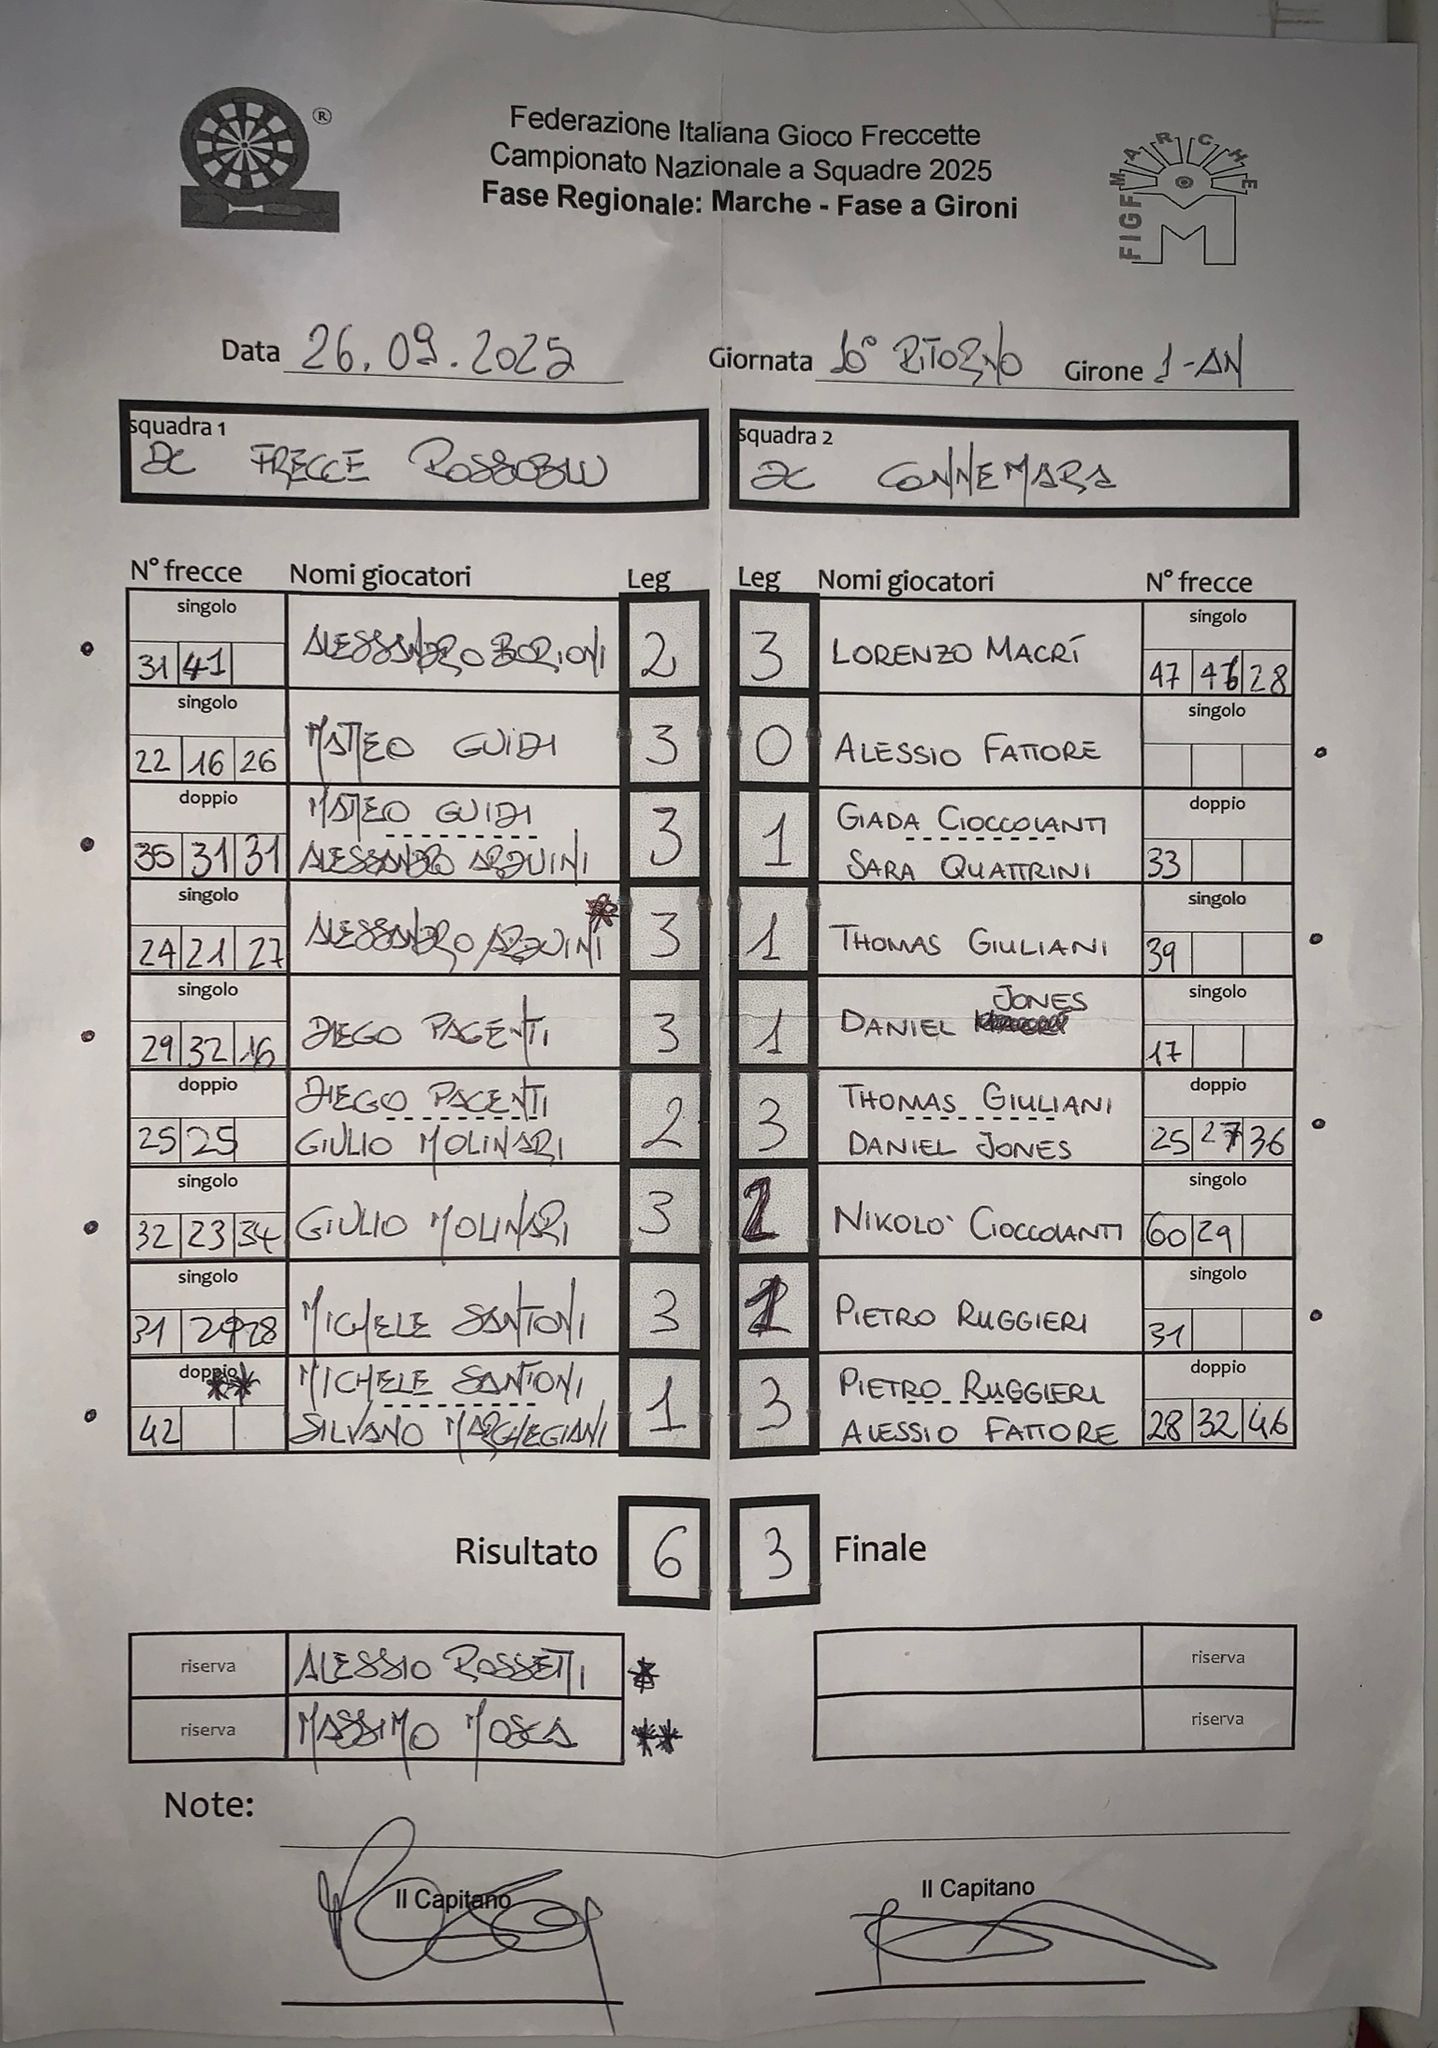 ®
Federazione Italiana Gioco Freccette
Campionato Nazionale a Squadre 2025
Fase Regionale: Marche - Fase a Gironi
FIGF MARCHE
M
Data 26.09.2025 Giornata 10° RITORNO Girone 1-AN
squadra 1 squadra 2
DC FRECCE ROSSOBLU DC CONNEMARA
N° frecce Nomi giocatori Leg Leg Nomi giocatori N° frecce
singolo singolo
31 41 ALESSANDRO BORIONI 2 3 LORENZO MACRÍ 47 28
singolo singolo
22 16 26 MATTEO GUIDI 3 0 ALESSIO FATTORE
doppio MATTEO GUIDI GIADA CIOCCOLANTI doppio
35 31 31 ALESSANDRO ARDUINI 3 1 SARA QUATTRINI 33
singolo singolo
24 21 27 ALESSANDRO ARDUINI * 3 1 THOMAS GIULIANI 39
singolo JONES singolo
29 32 16 DIEGO PACENTI 3 1 DANIEL 17
doppio DIEGO PACENTI THOMAS GIULIANI doppio
25 25 GIULIO MOLINARI 2 3 DANIEL JONES 25 27 36
singolo singolo
32 23 34 GIULIO MOLINARI 3 2 NIKOLO' CIOCCOLANTI 60 29
singolo singolo
31 28 MICHELE SANTONI 3 PIETRO RUGGIERI 31
doppio ** MICHELE SANTONI PIETRO RUGGIERI doppio
42 SILVANO MARCHEGIANI 1 3 ALESSIO FATTORE 28 32 46
Risultato 6 3 Finale
riserva ALESSIO ROSSETTI * riserva
riserva MASSIMO MOSCA ** riserva
Note:
Il Capitano Il Capitano